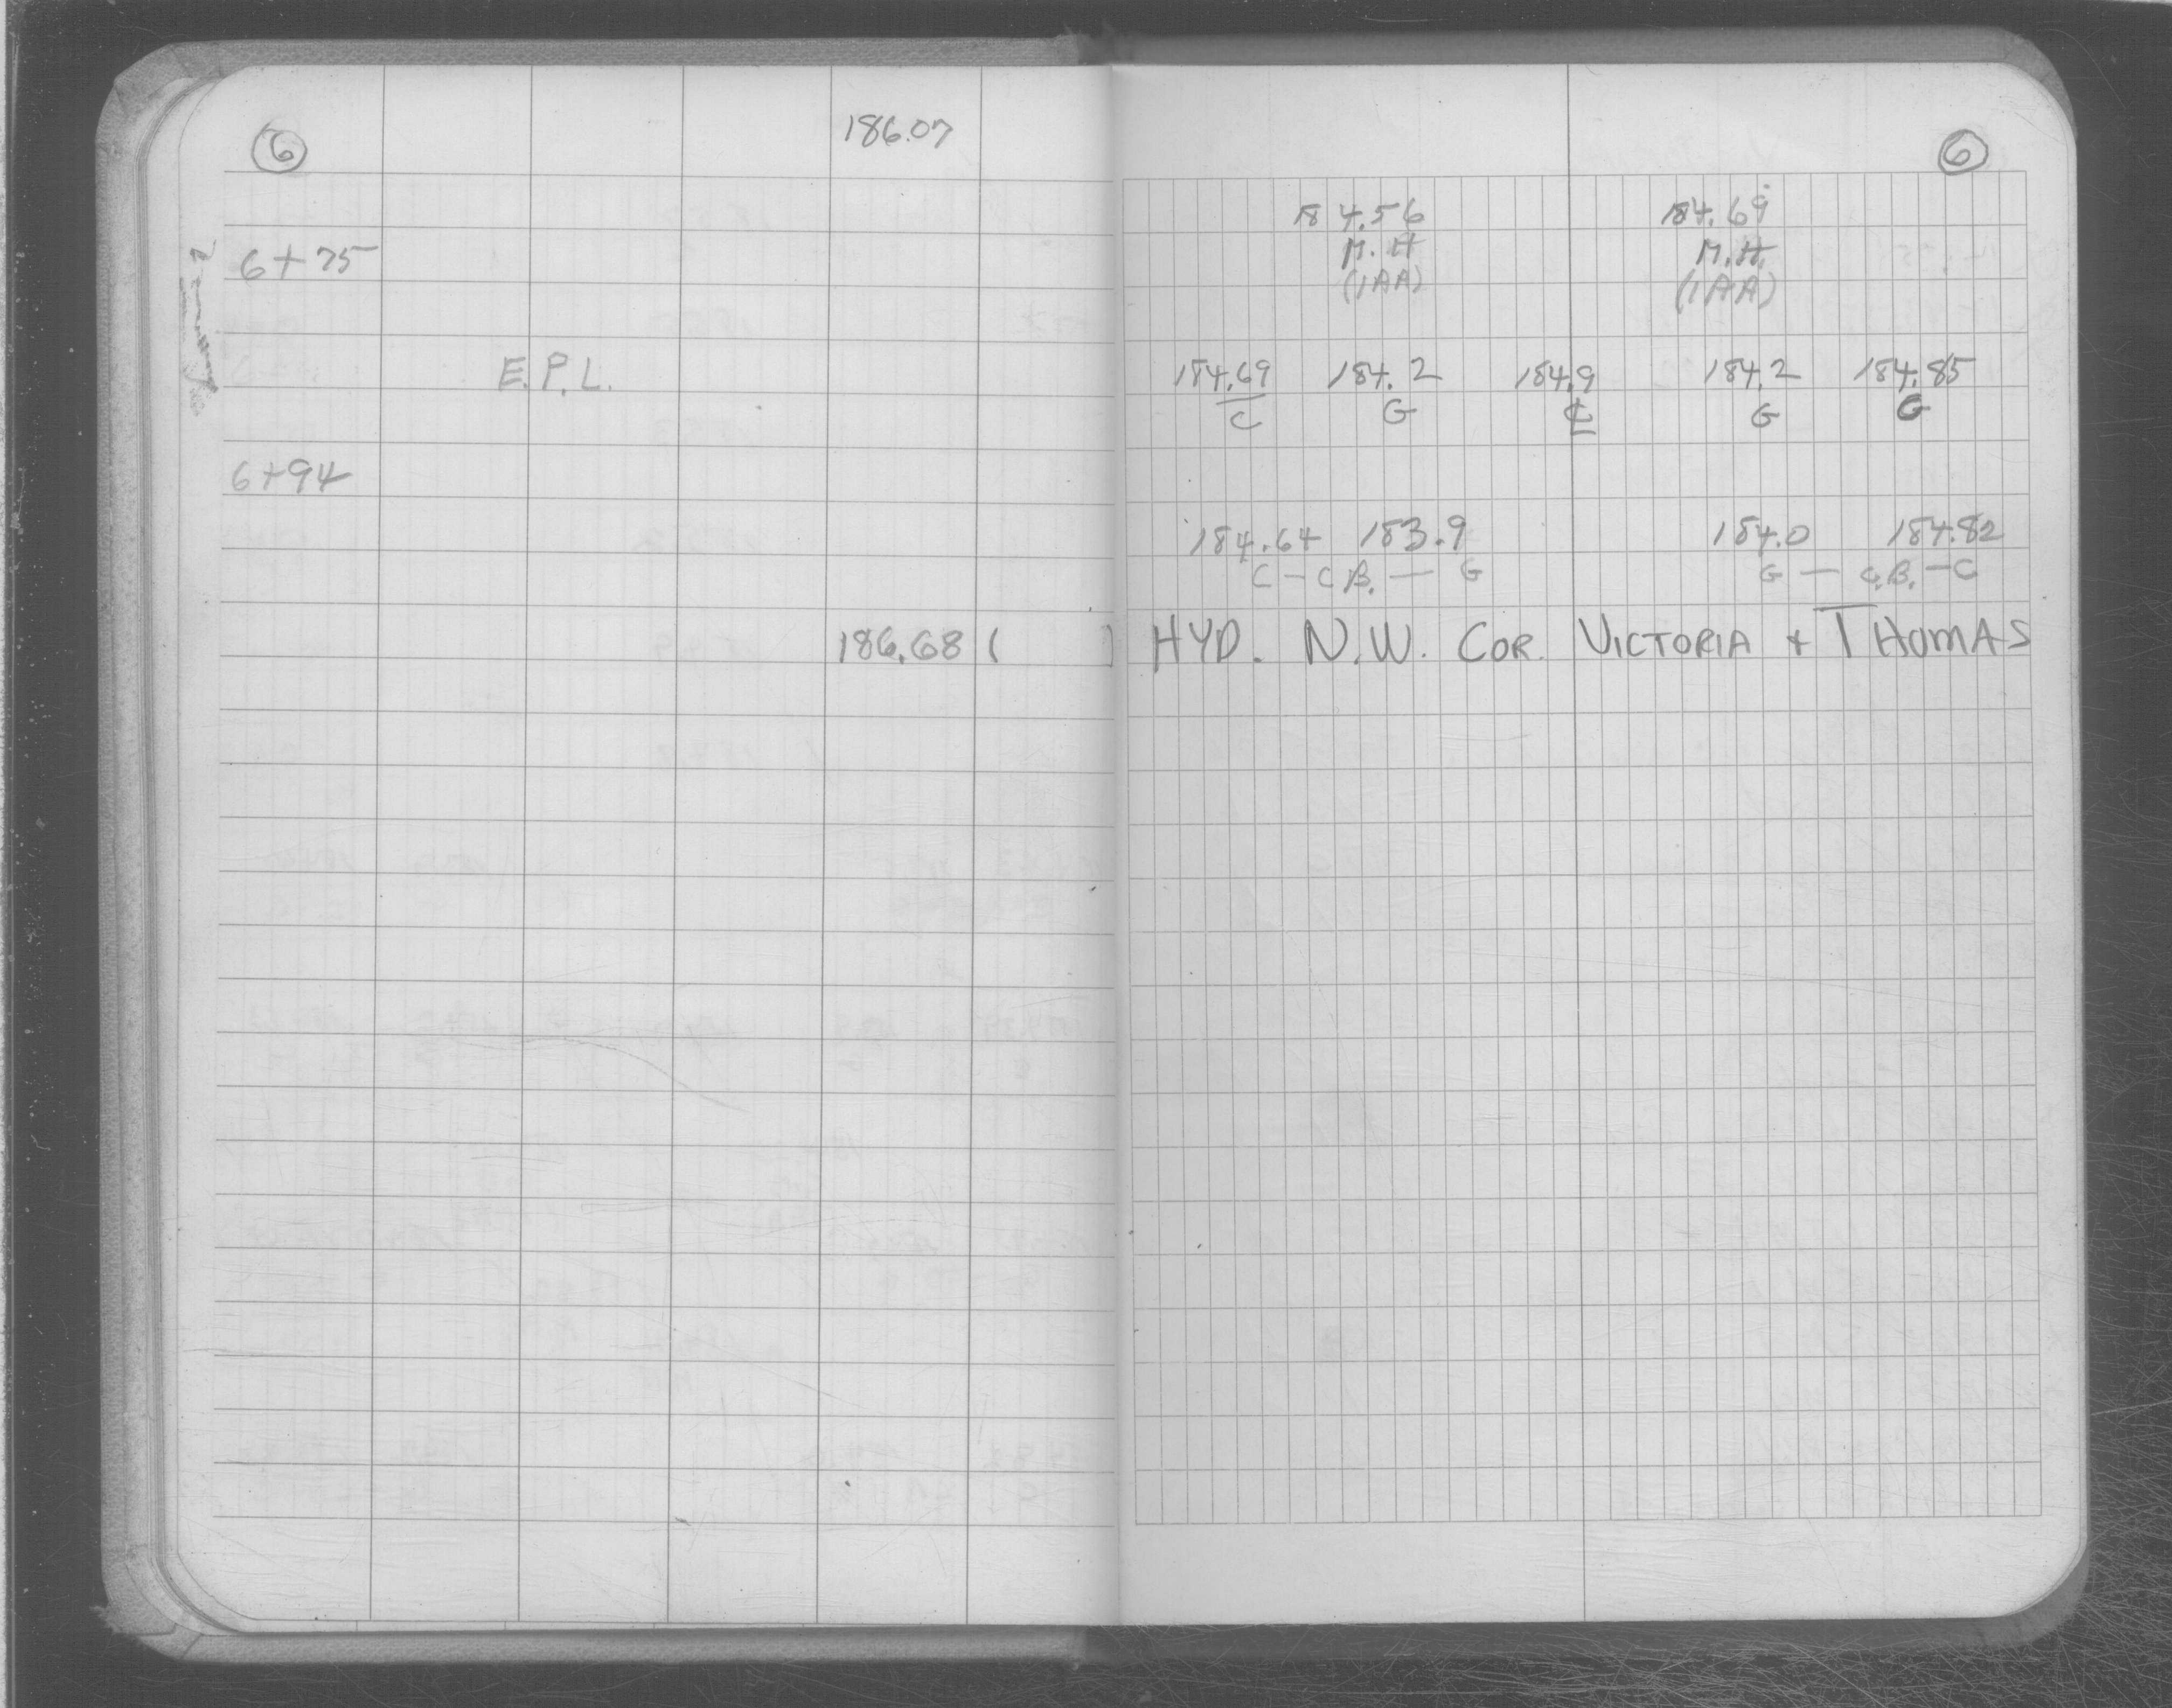 6
186.07
6+75
E.P.L.
6+94
186.68 ( )
6
184.56 184.69
M.H M.H.
(1AA) (1AA)
184.69 184.2 184.9 184.2 184.85
C G ℄ G G
184.64 183.9 184.0 184.82
C - C.B. - G G - C.B. - C
HYD. N.W. COR. VICTORIA + THOMAS